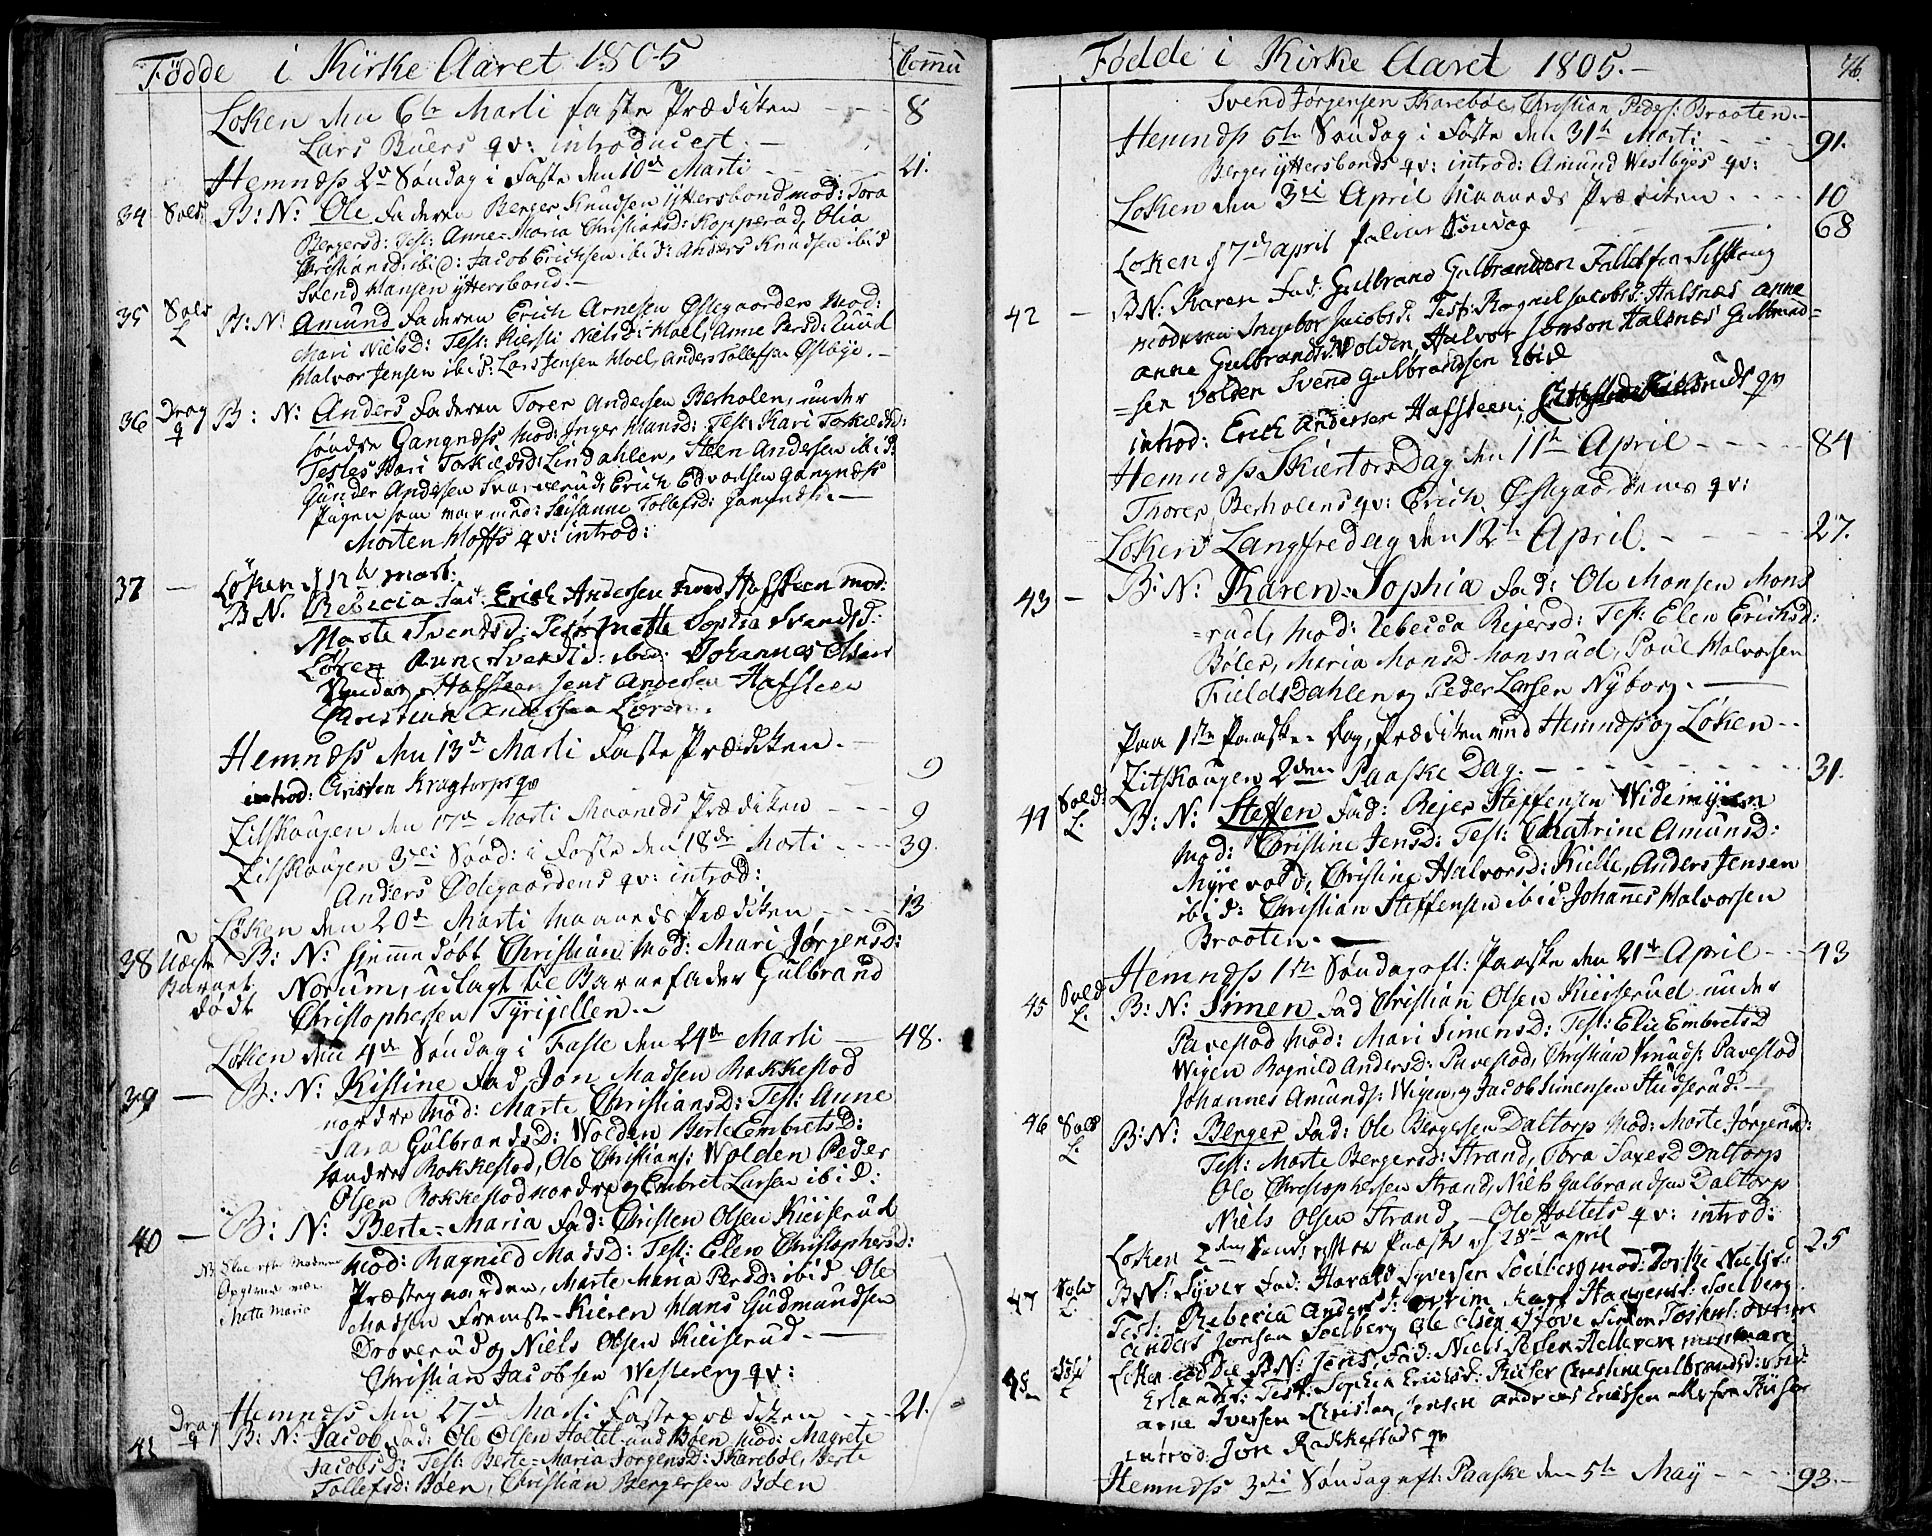 Fødde i Kirke Aaret 1805
Comu
Løken den 6te Marti faste Prædiken - - - 8
Lars Buers qv: introducert. -
Hemnæss 2d Søndag i Faste den 10de Marti - - - 21.
34 Sold B: N: Ole faderen Berger Knudsen Yttersbond mod: Tora
Bergersd: Test: Anne-Maria Christiansd: Kopperud, Olia
Christiansd: ibid: Jacob Erichsen ibid: Anders Knudsen ibid
Svend Hansen Yttersbond. -
35 Sold L B: N: Amund faderen Erich Arnesen Østegaarden Mod:
Mari Nielsd: Test: Kiersti Nielsd: Moel, Anne Persd: Ruud
Halvor Jensen ibid: Lars Jensen Moel, Anders Tollefsen Østbye. -
36 Drag q B: N: Anders faderen Torer Andersen Berholen, under
søndre Gangnæss Mod: Inger Hansd: Test: Kari Torkildsd:
Tesles Mari Torkildsd: Lindahlen, Steen Andersen ibid:
Gunder Andersen Svarverud, Erich Edvardsen Gangnæss
Pigen som var med: Susanne Tollefsd: Gangnæss. -
Morten Hoffs qv: introd:
37 - Løken d 12te mart:
B N. Rebecia fad: Erich Andersen Hafsteen mod:
Marte Svendsd: Test: Mette Sophia Svendsd:
Løren Anne Svendsd: ibid: Johannes Olsen
Hafsteen Jens Andersen Hafsteen
Christian Andersen Løren.
Hemnæss den 13de Marti Faste Prædiken. -
introd: Christen Kragtorps qv 9
Zitskougen den 17de Marti Maaneds Prædiken - - - 9
Zitskougen 3die Sönd: i Faste den 18de Marti - - - 39.
Anders Ødegaardens qv: introd:
Løken den 20de Marti Maaneds Prædiken - - - 13
38 Uægte Barnet dødt B: N: hjemmedøbt Christian Mod: Mari Jørgensd:
Norum, udlagt til Barnefader Gulbrand
Christophersen Tyrijellen. -
Løken den 4de Søndag i Faste den 24de Marti - 48.
39 - B: N: Kistine Fad Jon Madsen Rakkestad
nordre Mod: Marte Christiansd: Test: Anne
Sara Gulbrandsd: Wolden Berte Embretsd:
Søndre Rakkestad, Ole Christians: Wolden Peder
Olsen Rakkestad nordre og Embret Larsen ibid:
40 - B: N: Berte-Maria Fad: Christen Olsen Kieiserud
Mod: Ragnild Madsd: Test: Elen Christophersd:
Præstegaarden, Marte Maria Persd: ibid Ole
Madsen Fremste-Kieren Hans Gudmundsen
Droverud og Niels Olsen Kieiserud. -
Christian Jacobsen Westereng qv:
Hemnæss den 27de Marti Fastepræediken - - - 21.
41 Drag q B: N: Jacob Fad: Ole Olsen Holtet und Bøen, Mod: Magrete
Jacobsd: Test: Berte-Maria Jørgensd: Skarebøl, Berte
Tollefsd: Bøen, Christian Bergersen Bøen
Fødde i Kirke Aaret 1805. -
76.
Svend Jørgensen Skarebøl, Christian Peders: Braaten. -
Hemnæss 5te Søndag i Faste den 31te Marti - - - 91.
Berger Yttersbonds qv: introd: Amund Westbyes qv:
Løken den 3die April Maaneds Prædiken - - - 10
Løken d 7de april palme Søndag - - - 68
42 - B N: Karen Fad: Gulbrand Gulbrandsen Tillskoug
moderen Ingebor Jacobsd: Test: Ragnil Jacobsd: Halsnæs anne
anne Gulbrandsd: Volden, Halvor Jonsen Halsnæs Gulbrand=
=sen Volden Svend Gulbrandsen ibid
introd: Erich Andersen Hafsteen, qv
Hemnæss Skiertorsdag den 11te April - - - 84
Thorer Berholens qv: Erich Østegaardens qv:
Løken Langfredag den 12te April. - - - 27.
43 - B: N: Karen-Sophia Fad: Ole Monsen Mons
=rud, Mod: Rebecca Rejersd: Test: Elen Erichsd:
Bøler, Maria Monsd Monsrud, Poul Halvorsen
Fieldsdahlen og Peder Larsen Nyborg. -
Paa 1ste Paaske-Dag, Prædiken ved Hemnæss og Løken - -
Zitskougen 2den Paaske Dag. - - - 31.
44 Sold: L. B: N: Steffen Fad: Rejer Steffensen Widemyren
Mod: Christine Jensd: Test: Chatrine Amunsd:
Myrevold, Christine Halvorsd: Kielle, Anders Jensen
ibid: Christian Steffensen ibid Johannes Halvorsen
Braaten. -
Hemnæss 1ste Søndag eft: Paaske den 21de April - - 43
45 Sold L. B: N: Simen Fad Christian Olsen Kieiserud under
Pavestad Mod: Mari Simensd: Test: Elie Embretsd
Wigen Ragnild Andersd: Pavestad, Christian Knuds: Pavestad
Johannes Amunds: Wigen, og Jacob Simensen Studserud. -
46 Sold L. B: N: Berger Fad: Ole Bergersen Daltorp Mod: Marte Jørgensd:
Test: Marte Bergersd: Strand, Tora Saxesd Daltorp
Ole Christophersen Strand, Niels Gulbrandsen Daltorp
Niels Olsen Strand, - Ole Holtets qv: introd:
Løken 2den Sønd: efter Paaske d 28de april 25
47 Sold L. B N: Syver Fad: Harald Syversen Soelberg mod: Nielsd:
Test: Rebecia Andersd: Haagensd: Soelberg
Anders Jonsen Soelberg Ole Olsen
48 L Løken B N: Jens, Fad: Niels
Erlandsd: Test: Sophia Erichsd: Riiser Christine Gulbrandsd:
Arne Iversen Christen Jensen Andreas Erichsen Riiser
introd: Jon Rakkestads qv
Hemnæss 3die Søndag eft: Paaske den 5te May - - - 93. -